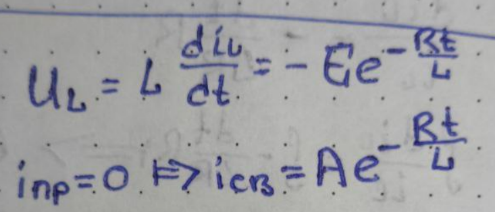 U_L = L di_L/dt = - Ee^(-Rt/L)
i_пр = 0 ⇒ i_св = Ae^(-Rt/L)